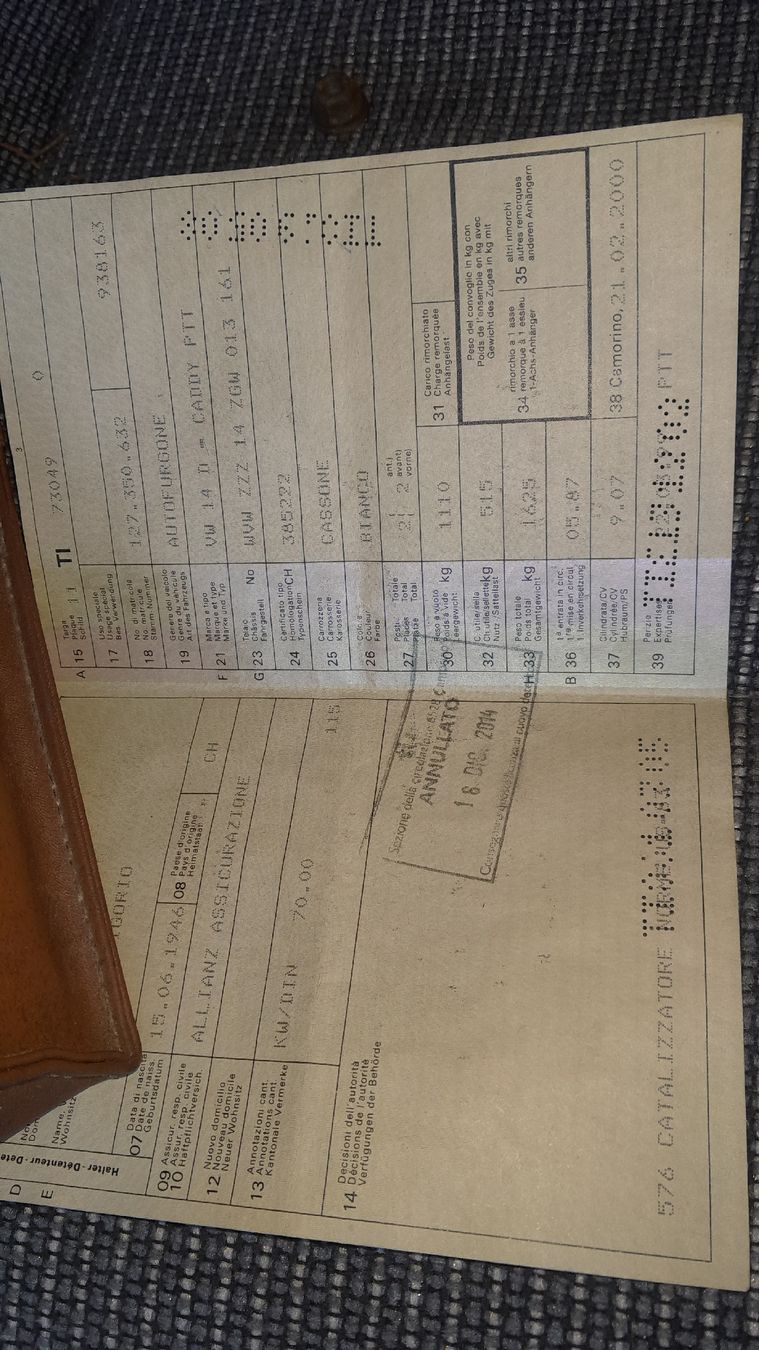 Halter - Détenteur - Date
D
E
Wohnsitz
IGORIO
07 Data di nascita
Date de naiss.
Geburtsdatum
15.06.1946
08 Paese d'origine
Pays d'origine
Heimatstaat
CH
09 Assicur. resp. civile
10 Assur. resp. civile
Haftpflichtversich.
ALLIANZ ASSICURAZIONE
12 Nuovo domicilio
Nouveau domicile
Neuer Wohnsitz
13 Annotazioni cant.
Annotations cant.
Kantonale Vermerke
KW/DIN 70.00 115
14 Decisioni dell'autorità
Décisions de l'autorité
Verfügungen der Behörde
Sezione della circolazione
ANNULLATO
16 DIC. 2014
576 CATALIZZATORE
3
A 15 Targa
Plaque
Schild
TI 73049 0
17 Uso speciale
Usage spécial
Bes. Verwendung
938163
18 No di matricola
No matricule
Stamm-Nummer
127.350.632
19 Genere del veicolo
Genre du véhicule
Art des Fahrzeugs
AUTOFURGONE
F 21 Marca e tipo
Marque et type
Marke und Typ
VW 14 D - CADDY PTT
G 23 Telaio
Châssis No
Fahrgestell
WVW ZZZ 14 ZGW 013 161
24 Certificato tipo
Homologation CH
Typenschein
385222
25 Carrozzeria
Carrosserie
Karosserie
CASSONE
26 Colore
Couleur
Farbe
BIANCO
27 Posti Totale
Places Total
Plätze Total
2 2
ant.
avant
vorne
30 Peso a vuoto
Poids à vide kg
Leergewicht
1110
31 Carico rimorchiato
Charge remorquée
Anhängelast
32 C. utile/sella
Ch. utile/sellette kg
Nutz-/Sattellast
515
H 33 Peso totale
Poids total kg
Gesamtgewicht
1625
Peso del convoglio in kg con
Poids de l'ensemble en kg avec
Gewicht des Zuges in kg mit
34 rimorchio a 1 asse
remorque à 1 essieu
1-Achs-Anhänger
35 altri rimorchi
autres remorques
anderen Anhängern
B 36 1ª entrata in circ.
1re mise en circul.
1. Inverkehrsetzung
05.87
37 Cilindrata/CV
Cylindrée/CV
Hubraum/PS
9.07
38 Camorino, 21.02.2000
39 Perizie
Expertises
Prüfungen
PTT